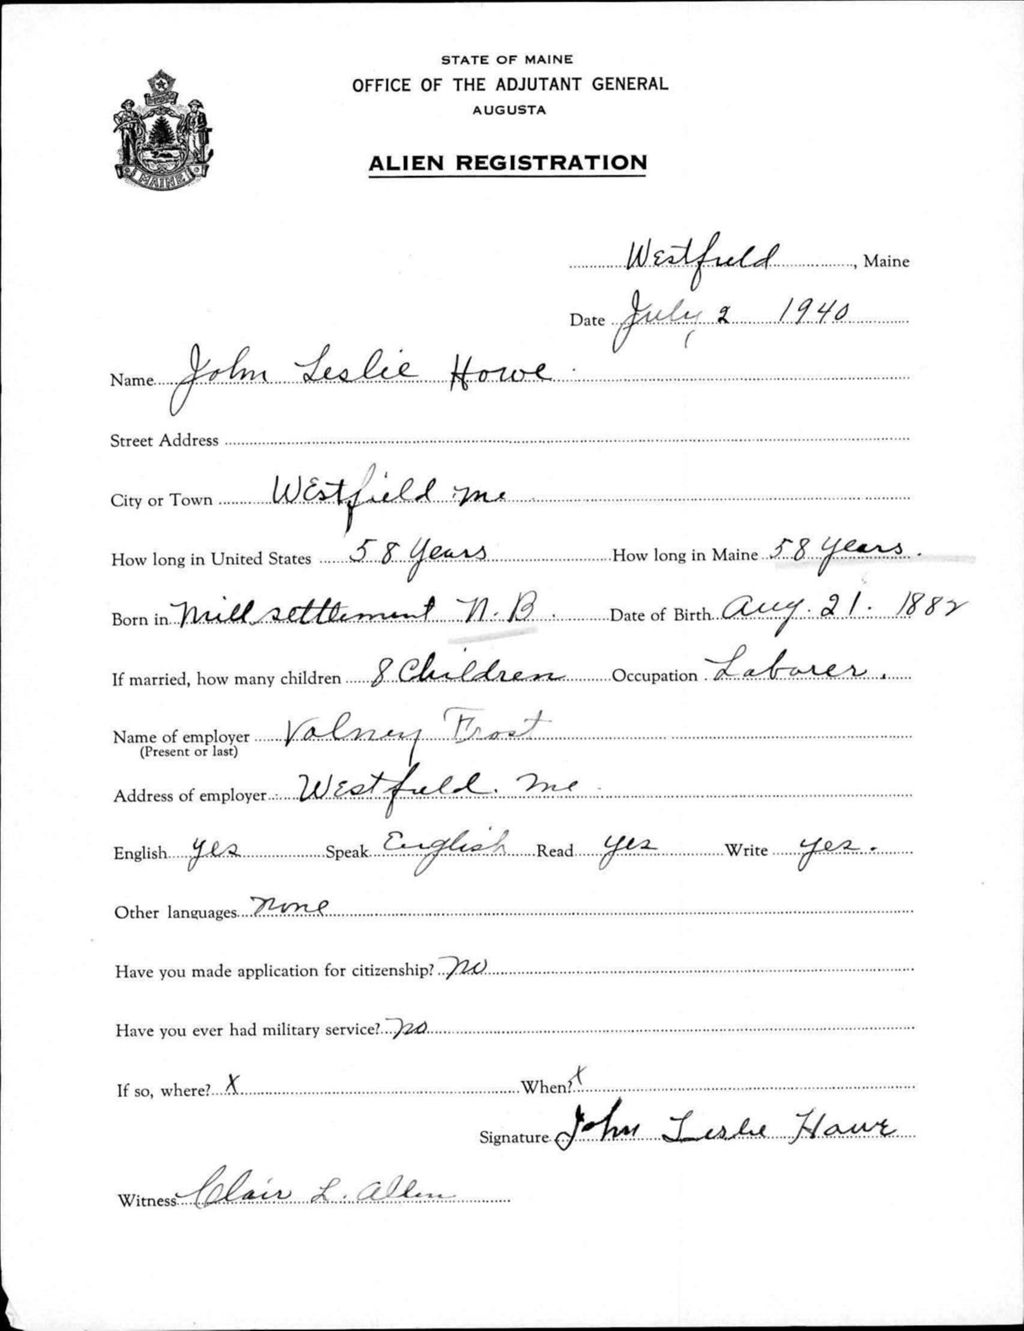 STATE OF MAINE
OFFICE OF THE ADJUTANT GENERAL
AUGUSTA
ALIEN REGISTRATION
MAINE
Westfield, Maine
Date July 2 1940
Name John Leslie Howe
Street Address
City or Town Westfield Me
How long in United States 58 Years How long in Maine 58 years.
Born in Mill settlement N.B. Date of Birth Aug. 21. 1882
If married, how many children 8 Children Occupation Laborer.
Name of employer Volney Frost
(Present or last)
Address of employer Westfield. Me.
English yes Speak English Read yes Write yes.
Other languages None
Have you made application for citizenship? No
Have you ever had military service? No
If so, where? X When? X
Signature John Leslie Howe
Witness Clair L. Allen